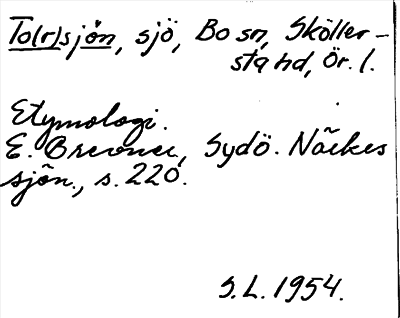 To(r)sjön, sjö, Bo sn, Sköller-
sta hd, Ör. l.
Etymologi.
E. Brevner, Sydö. Närkes
sjön., s. 220.
S.L. 1954.